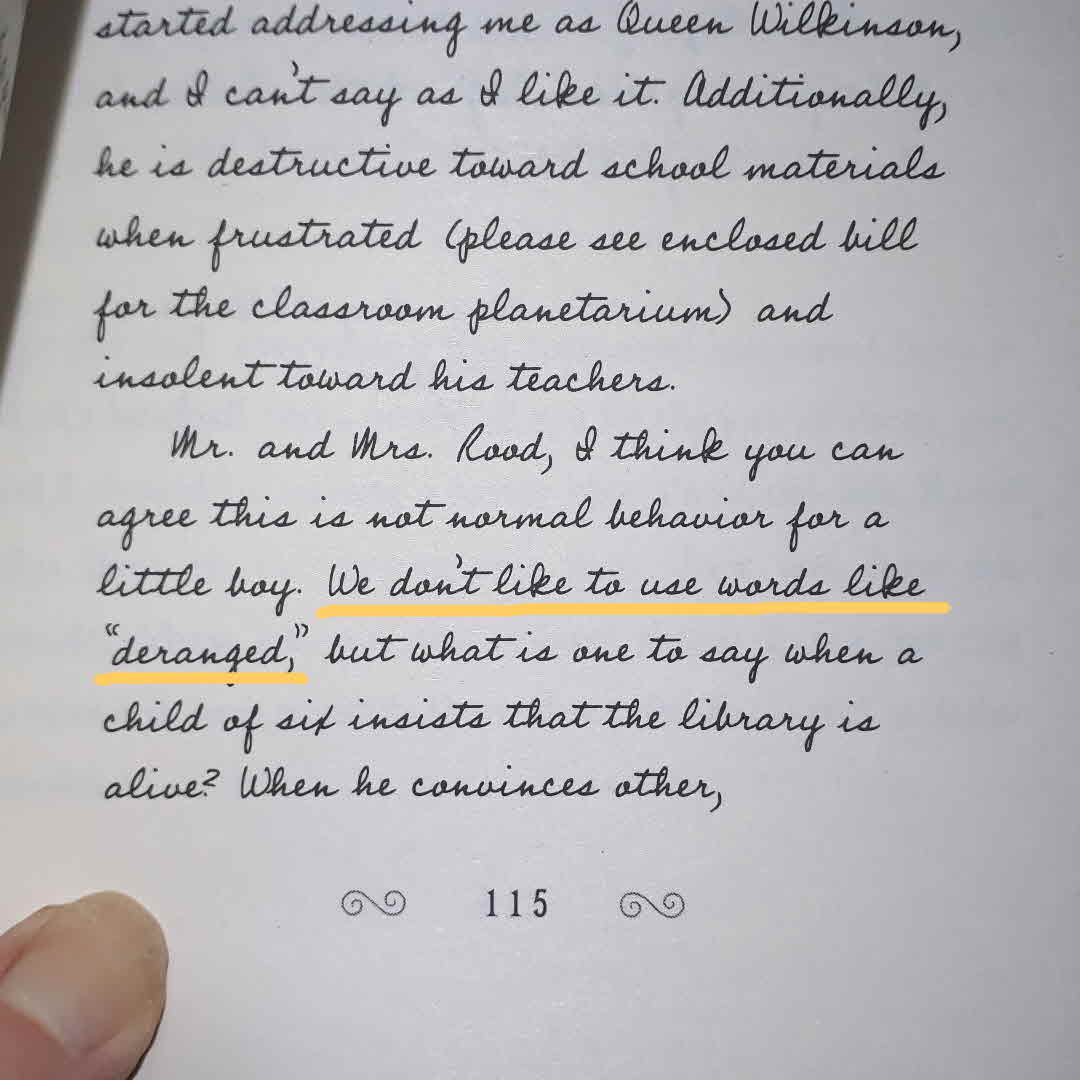 started addressing me as Queen Wilkinson,
and I can't say as I like it. Additionally,
he is destructive toward school materials
when frustrated (please see enclosed bill
for the classroom planetarium) and
insolent toward his teachers.
Mr. and Mrs. Rood, I think you can
agree this is not normal behavior for a
little boy. We don't like to use words like
"deranged," but what is one to say when a
child of six insists that the library is
alive? When he convinces other,
115